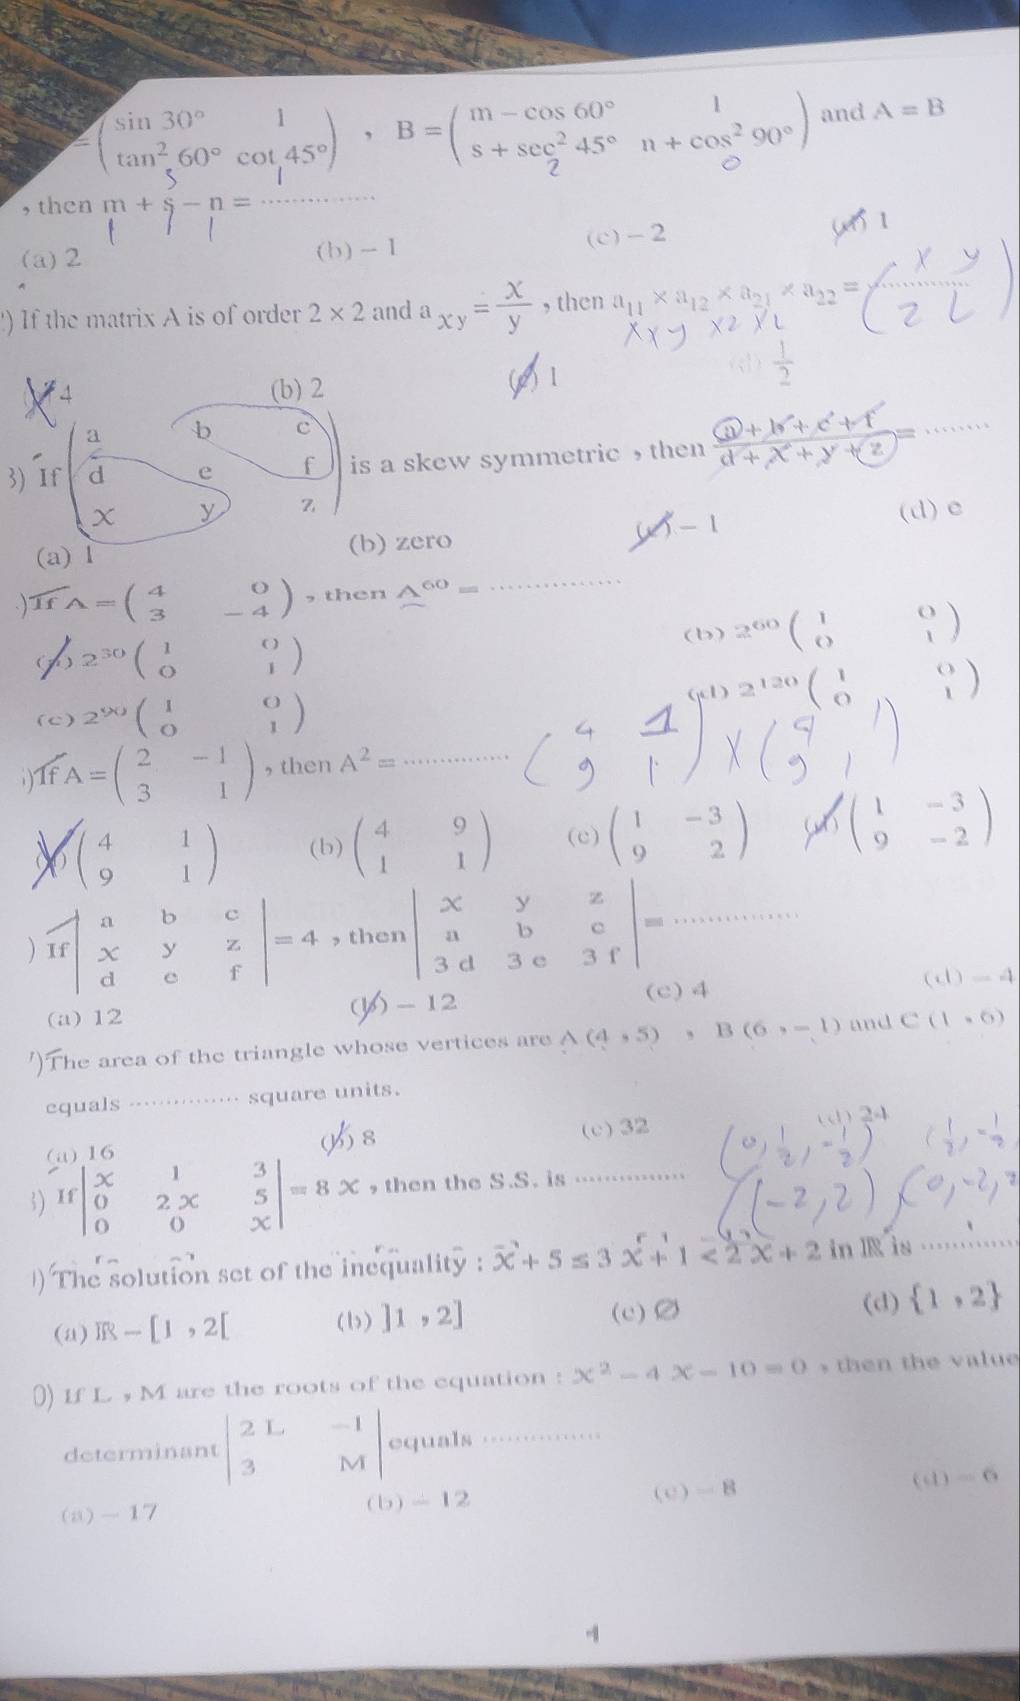 = ( sin 30° 1 ) , B = ( m − cos 60° 1 ) and A = B
( tan² 60° cot 45° ) ( s + sec² 45° n + cos² 90° )
3 1 2 0
, then m + s − n = ...............
1 1 1
(a) 2 (b) − 1 (c) − 2 (d) 1
) If the matrix A is of order 2 × 2 and a xy = x/y , then a₁₁ × a₁₂ × a₂₁ × a₂₂ = ...............
(a) 4 (b) 2 (c) 1 (d) 1/2
3) If ( a b c )
( d e f ) is a skew symmetric , then (a + b + c + f)/(d + x + y + z) = .........
( x y z )
(a) 1 (b) zero (c) − 1 (d) e
) If A = ( 4 0 ) , then A⁶⁰ = ...............
( 3 − 4 )
(a) 2³⁰ ( 1 0 ) (b) 2⁶⁰ ( 1 0 )
( 0 1 ) ( 0 1 )
(c) 2⁹⁰ ( 1 0 ) (d) 2¹²⁰ ( 1 0 )
( 0 1 ) ( 0 1 )
) If A = ( 2 − 1 ) , then A² = ............... ( 4 1 ) × ( 4 1 )
( 3 1 ) ( 9 1 ) ( 9 1 )
(a) ( 4 1 ) (b) ( 4 9 ) (c) ( 1 − 3 ) (d) ( 1 − 3 )
( 9 1 ) ( 1 1 ) ( 9 2 ) ( 9 − 2 )
) If | a b c | | x y z |
| x y z | = 4 , then | a b c | = ...............
| d e f | | 3 d 3 e 3 f |
(a) 12 (b) − 12 (c) 4 (d) − 4
) The area of the triangle whose vertices are A (4 , 5) , B (6 , − 1) and C (1 , 6)
equals ............... square units.
(a) 16 (b) 8 (c) 32 (d) 24
) If | x 1 3 |
| 0 2 x 5 | = 8 x , then the S.S. is ...............
| 0 0 x |
(0, 1/2, -1/2) (1/2, -1/2
(-2, 2) (0, -2, 2
) The solution set of the inequality : x + 5 ≤ 3 x + 1 < 2 x + 2 in ℝ is ...............
(a) ℝ − [1 , 2[ (b) ]1 , 2] (c) ∅ (d) {1 , 2}
0) If L , M are the roots of the equation : x² − 4 x − 10 = 0 , then the value
determinant | 2 L −1 | equals ...............
| 3 M |
(a) − 17 (b) − 12 (c) − 8 (d) − 6